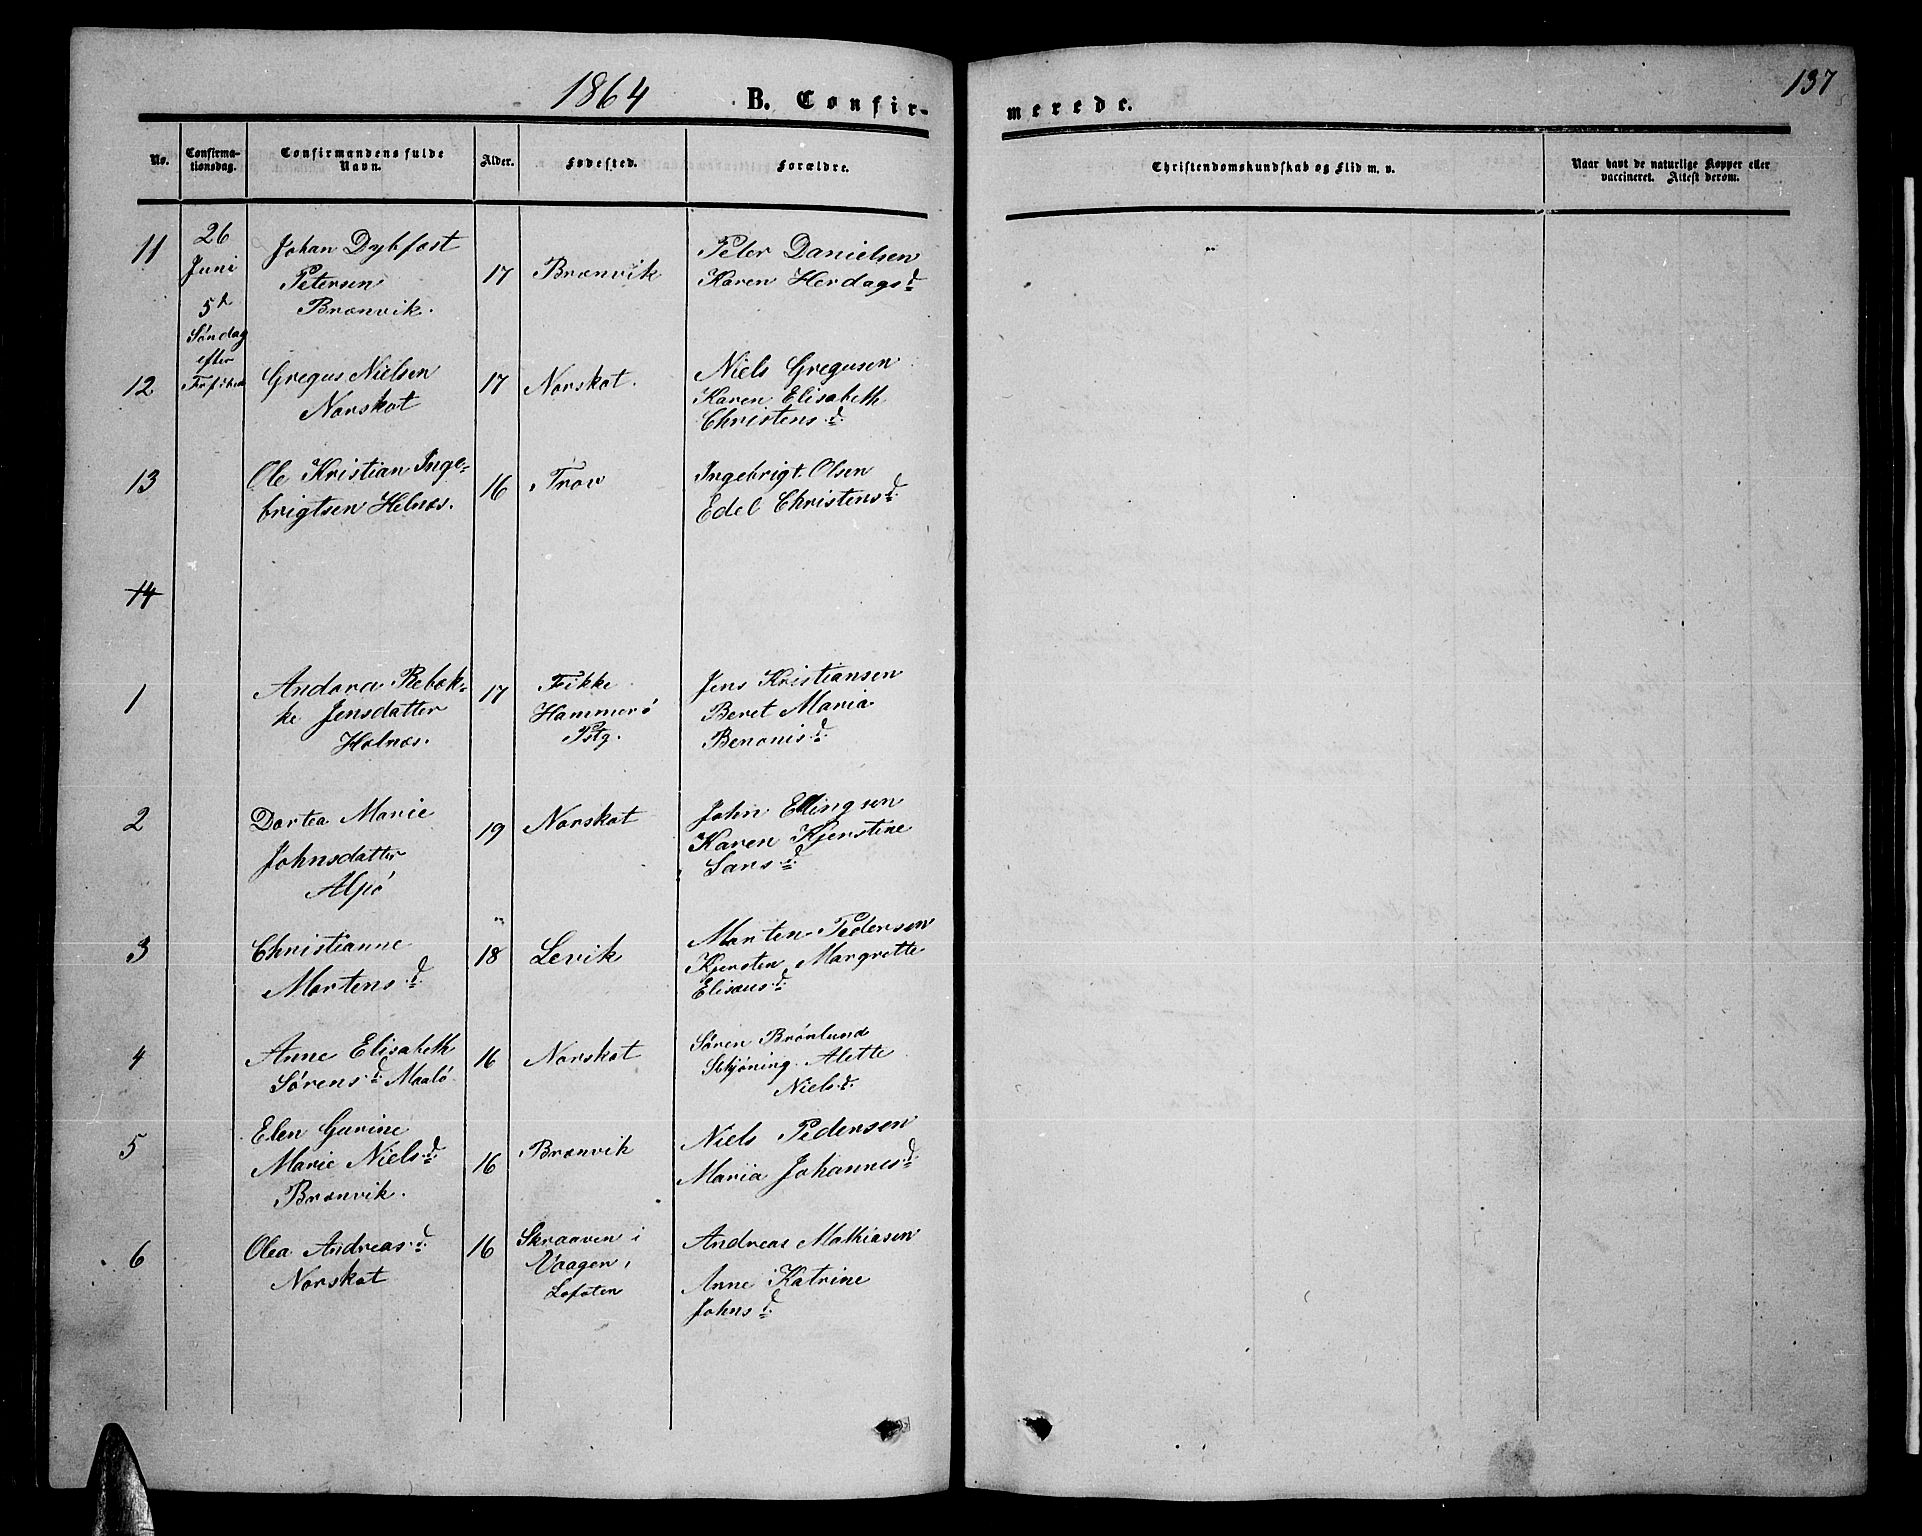 1864 B. Confir-
merede.
137
No.
Confirma-
tionsdag.
Confirmandens fulde
Navn.
Alder.
Fødested.
Forældre.
Christendomskundskab og Flid m. v.
Naar havt de naturlige Kopper eller
vaccineret. Attest derom.
11
26
Juni
5te
Søndag
efter
Johan Dybfest
Petersen
Brænvik.
17
Brænvik
Peter Danielsen
Karen Herdagsd.
12
Gregus Nielsen
Norskot
17
Norskot.
Niels Gregusen
Karen Elisabeth
Christensd.
13
Ole Kristian Inge-
brigtsen Helnæs.
16
Trov
Ingebrigt Olsen
Edel Christensd.
14
1
Andora Rebek-
ke Jensdatter
Helnæs.
17
Fikke
Hammerø
Pstg.
Jens Kristiansen
Beret Maria
Benonisd.
2
Dortea Marie
Johnsdatter
Alpø
19
Norskot
John Ellingsen
Karen Kjerstine
Larsd.
3
Christianne
Martensd.
18
Levik
Marten Pedersen
Kjersten Margrette
Elisæusd.
4
Anne Elisabeth
Sørensd. Maalø.
16
Norskot
Søren Brønlund
Skjøning. Alette
Nielsd.
5
Elen Gurine
Marie Nielsd.
Brænvik.
16
Brænvik
Niels Pedersen
Maria Johannesd.
6
Olea Andreasd.
Norskot
16
Skraaven i
Vaagen,
Lofoten
Andreas Mathiasen
Anne Katrine
Johnsd.